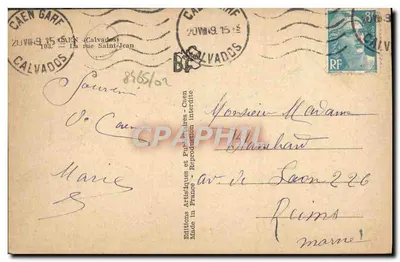 CAEN GARE
20 VIII 9.15
CALVADOS
CAEN GARE
20 VIII 9.15
CALVADOS
CAEN (Calvados)
103. - La rue Saint-Jean
8465/02
RF
Souvenir
Caen
Marie
CPARAMA.COM
Editions Artistiques et Publicitaires - Caen
Made in France - Reproduction interdite
Monsieur Madame
av. de Laon 226
Reims
Marne